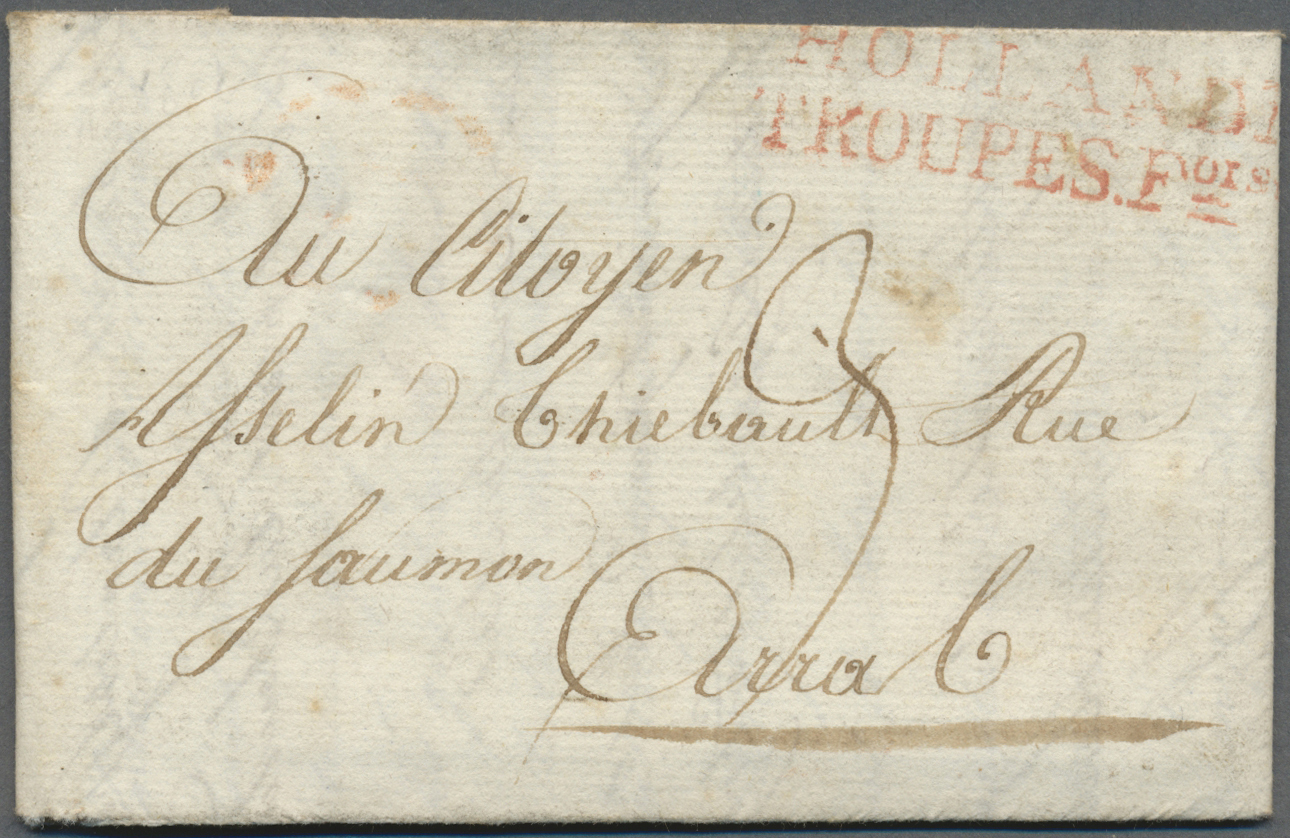 HOLLANDE
TROUPES.Foises
Au Citoyen
Ysselin Thiebault Rue
du Saumon
Arras
3